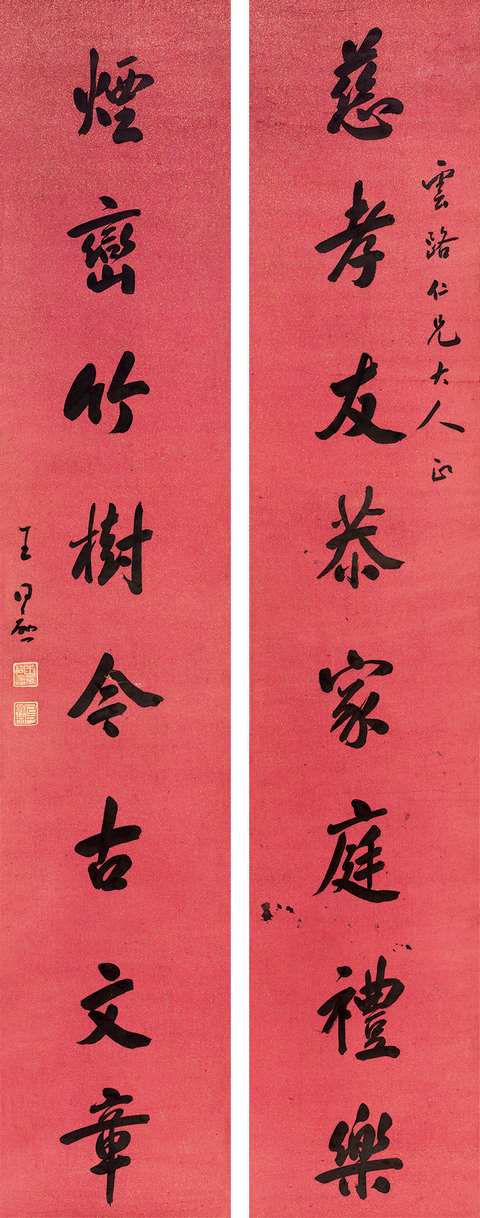 雲路仁兄大人正
慈孝友恭家庭禮樂
煙巒竹樹今古文章
王